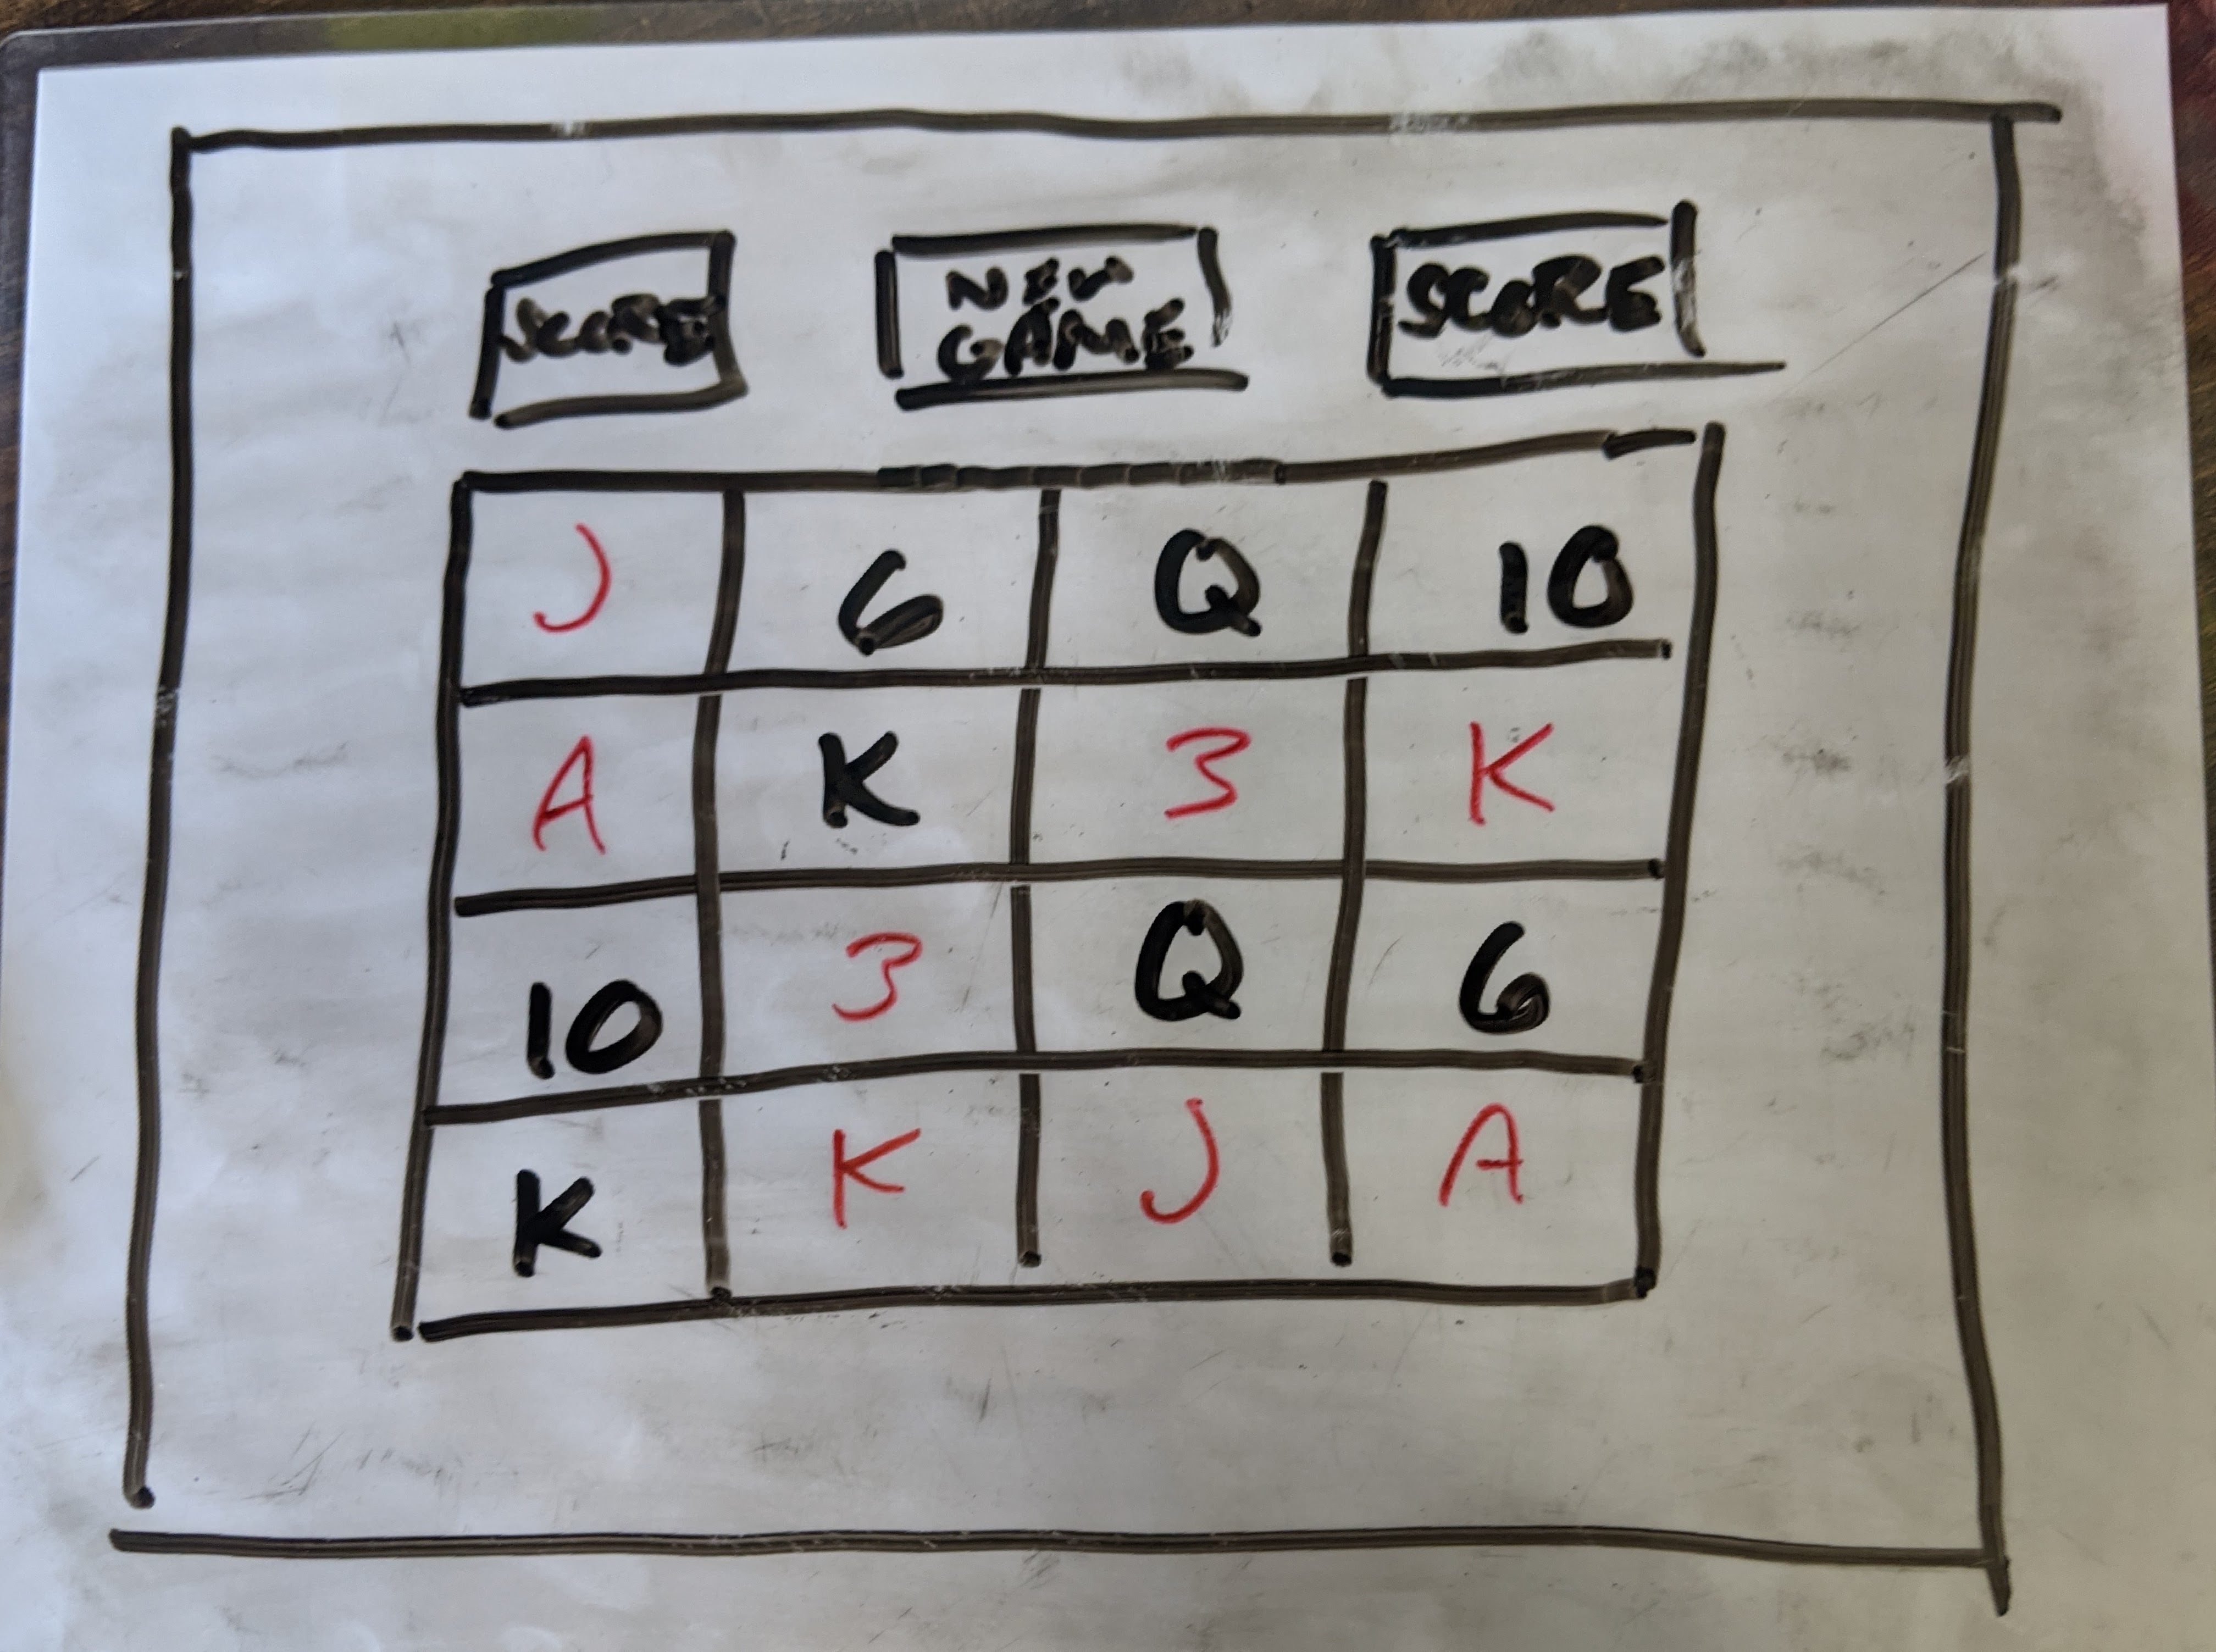 SCORE
NEW
GAME
SCORE
J 6 Q 10
A K 3 K
10 3 Q 6
K K J A